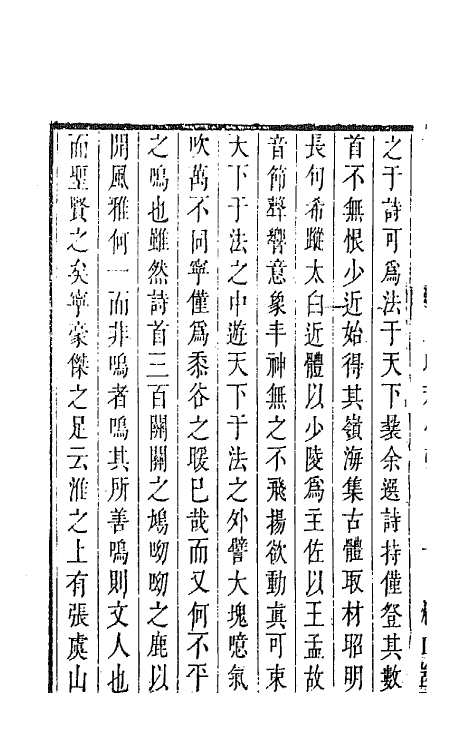 之于詩可爲法于天下裝余選詩持僅登其數
首不無恨少近始得其嶺海集古體取材昭明
長何希蹤太白近體以少陵爲主佐以王孟故
音節聲響意象丰神無之不飛揚欲動真可束
天下于法之中遊天下于法之外譬大塊噫氣
吹萬不同寧僅爲黍谷之暖已哉而又何不平
之鳴也雖然詩首三百關關之鳩呦呦之鹿以
開風雅何一而非鳴者鳴其所善鳴則文人也
而聖賢之矣寧豪傑之足云淮之上有張虞山